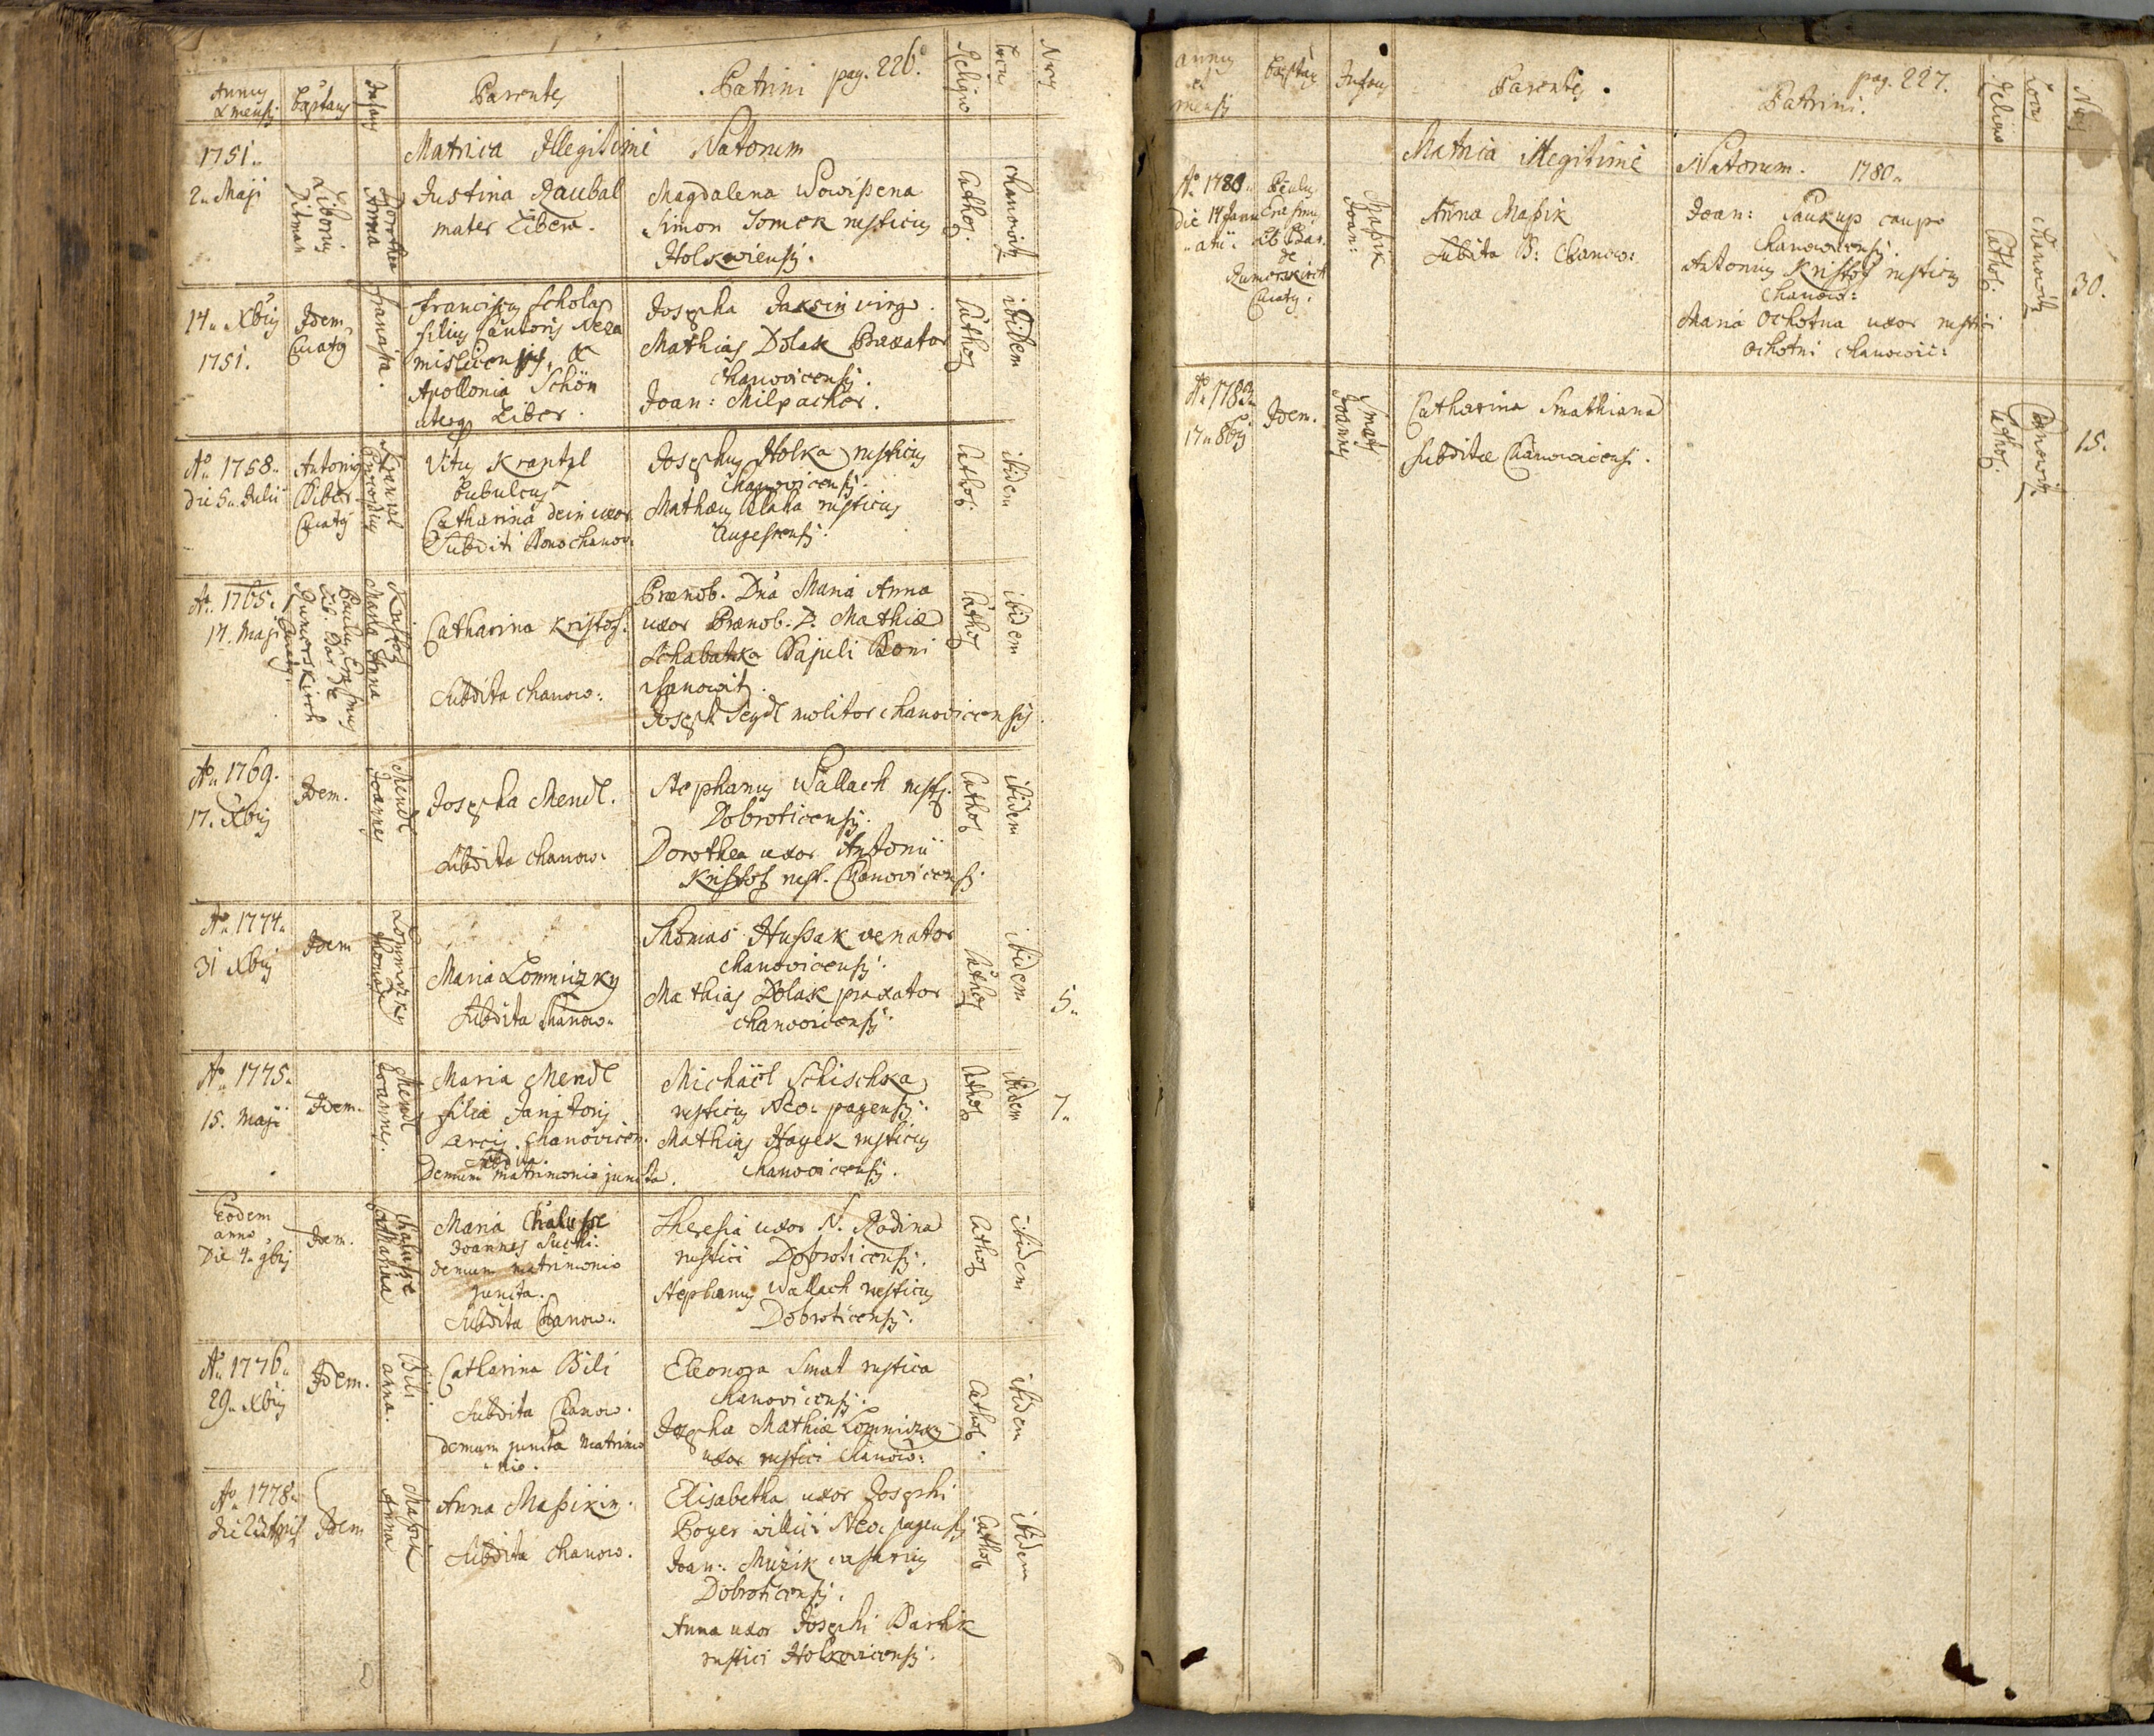 pag. 226.
Annus & mensis
Baptans
Infans
Parentes
Patrini
Religio
Locus
Nrus
Matrica Illegitimè Natorum
1751.
2. Maji
Liborius Ditman
Dorothea Anna
Justina Kaubal
mater Libera.
Magdalena Wowißena
Simon Tomek rusticus
Holkowiensis.
Cathol.
Chanowitz
14. Xbris
1751.
Idem Curatus
Francisca.
Franciscus Scholas
filius sutoris Neza
mislicensis, &
Apollonia Schön
uterq Liber.
Josepha Jaksin virgo.
Mathias Dolak Braxator
chanovicensis.
Joan: Milpacher.
Cathol
ibidem
Ao 1758.
die 5. Julii
Antonius
Biber
Curatus
Krantzl
Procopius
Vitus Krantzl
Bubulcus
Catharina dein uxor
Subditi Bono chanov.
Josephus Holka rusticus
chanovicensis.
Mathæus Blaha rusticus
Augestensis.
Cathol.
ibidem
Ao. 1765.
17. Maji
Paulus Erasmus
Lib. Bar de
Rumerskirch
Curatus.
Kristof
Maria Anna
Catharina Kristof.
Subdita chanow:
Prænob. Dña Maria Anna
uxor Prænob. D. Mathiæ
Schabatka Bajuli Boni
chanowitz.
Joseph Segdl molitor chanovicensis.
Cathol
ibidem
Ao. 1769.
17. Xbris
Idem.
Mendl
Joannes
Josepha Mendl.
Subdita chanow:
Stephanus Wallach rusts.
Dobroticensis.
Dorothea uxor Antonii
Kristof rust. Chanovicensis
Cathol
ibidem
Ao. 1774.
31 Xbris
Idem
Lomnizky
Thomas
Maria Lomnizky
Subdita chanow.
Thomas Hußak venator
chanovicensis.
Mathias Dolak praxator
chanovicensis.
Cathol
ibidem
5.
Ao. 1775.
15. Maji
Idem.
Mendl
Joannes.
Maria Mendl
filia Janitoris
arcis chanovicen.
Subdita.
Demum matrimonio juncta.
Michäel Schischka
rusticus Neo-pagensis.
Mathias Hayek rusticus
chanovicensis.
Cathol
ibidem
7.
Eodem
anno,
Die 4. 9bris
Idem.
Chalupße
Catharina
Maria Chalupße
Joannes Suchi.
demum matrimonio
juncta.
Subdita Chanow.
Theresia uxor N. Rodina
rustici Dobroticensis.
Stephanus Wallach rusticus
Dobroticensis.
Cathol
ibidem
Ao. 1776.
29. Xbris
Idem.
Bili
anna.
Catharina Bili
Subdita Chanow.
demum juncta matrimo
nio.
Eleonora Smat rustica
chanovicensis.
Josepha Mathiæ Lomnizky
uxor rustici chanow:
Cathol.
ibidem
Ao. 1778.
die 23 Aprilis
Idem
Maßik
Anna
Anna Maßikin.
Subdita chanow.
Elisabetha uxor Josephi
Boyer villici Neo-pagensis
Joan: Muzik casarius
Dobroticensis.
Anna uxor Josephi Bartik
rustici Holkovicensis.
Cathol
ibidem
pag. 227.
Annus et mensis
Baptans
Infans
Parentes.
Patrini.
Religio
Locus
Nrus
Matrica illegitimè Natorum. 1780.
Ao. 1780.
die 14 Janu
arii.
Paulus
Erasmus
Lib Bar.
de
Rumerskirch
Curatus.
Maßik
Joan:
Anna Maßik
Subdita B: Chanow:
Joan: Saukup caupo
chanovicensis
Antonius Kristof rusticus
Chanow:
Maria Ochotna uxor rustici
Ochotni chanowic:
Cathol.
Chanowitz
30.
Ao. 1782.
17. 8bris
Idem.
Smat
Joannes
Catharina Smathiana
Subditæ Chanovicensi.
Cathol.
Chanowitz
15.